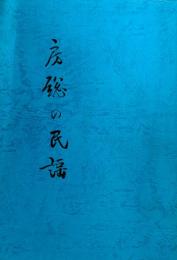 房総の民謡